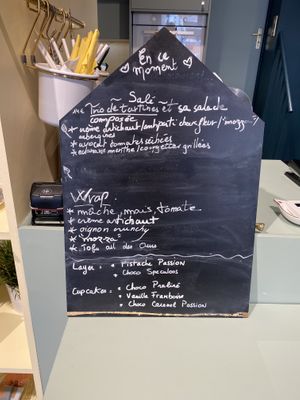 En ce
moment
Salé
Trio de tartines et sa salade
composée
* crème artichaut/antipasti chou fleur/mozza
aubergines
* avocat tomates séchées
* edamame menthe/courgettes grillées
Wrap
* mâche, maïs, tomate
* crème artichaut
* oignon crunchy
* "mozza"
* Tofu ail des Ours
Layer: * Pistache Passion
* Choco Speculoos
Cupcakes: * Choco Praliné
* Vanille Framboise
* Choco Caramel Passion